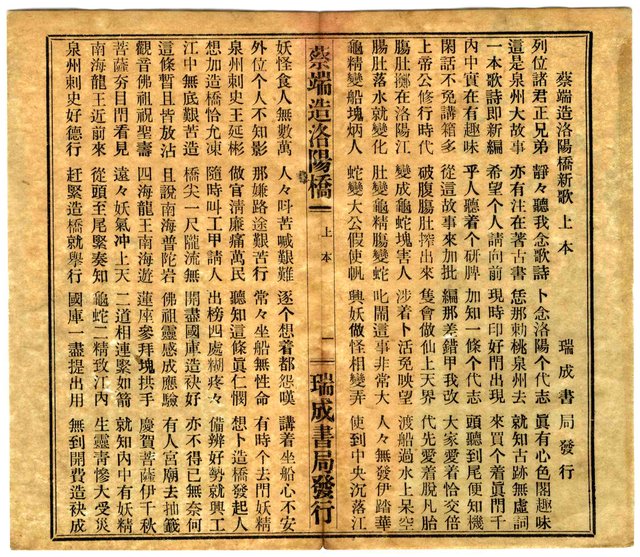 蔡端造洛陽橋新歌 上本 瑞成書局發行
列位諸君正兄弟 靜々聽我念歌詩 卜念洛陽个代志 眞有心色閣趣味
這是泉州大故事 亦有注在著古書 恁那勅桃泉州去 就知古跡無虛詞
一本歌詩即新編 希望个人請向前 現時印好門出現 來買个着眞門千
內中實在有趣味 乎人聽着个研脾 加知一條个代志 頭聽到尾便知機
閑話不免講箱多 從這故事來加批 編那差錯甲我改 大家愛着恰交倍
上帝公修行時代 破腹腸肚搾出來 隻會做仙上天界 代先愛着脫凡胎
腸肚擲在洛陽江 變成龜蛇塊害人 涉着卜活免映望 渡船過水上杲空
腸肚落水就變化 肚變龜精腸變蛇 叱鬧這事非常大 人々無發伊踏華
龜精變船塊炳人 蛇變大公假使帆 興妖做怪相變弄 使到中央沉落江
蔡端造洛陽橋 上本 一 瑞成書局發行
妖怪食人無數萬 人々叫苦喊艱難 逐个想着都怨嘆 講着坐船心不安
外位个人不知影 那嫌路途艱苦行 常々坐船無性命 有時个去門妖精
泉州刺史王延彬 做官淸廉痛萬民 聽知這條眞仁憫 想卜造橋發起人
想加造橋恰允凍 隨時叫工甲請人 出榜四處糊疼々 備辨好勢就興工
江中無底艱苦造 橋尖一尺隴流無 開盡國庫造袂好 亦不得已無奈何
這條暫且皆放沾 且說南海普陀岩 佛祖靈感成應驗 有人宮廟去抽籤
觀音佛祖祝聖壽 四海龍王南海遊 蓮座參拜塊拱手 慶賀菩薩伊千秋
菩薩夯目門看見 遠々妖氣冲上天 二道相連緊如箭 就知內中有妖精
南海龍王近前來 從頭至尾緊奏知 龜蛇二精致江內 生靈靑慘大受災
泉州刺史好德行 赶緊造橋就舉行 國庫一盡提出用 無到開費造袂成